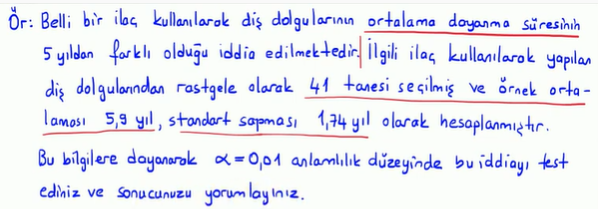 Ör: Belli bir ilaç kullanılarak diş dolgularının ortalama dayanma süresinin
5 yıldan farklı olduğu iddia edilmektedir. İlgili ilaç kullanılarak yapılan
diş dolgularından rastgele olarak 41 tanesi seçilmiş ve örnek orta-
laması 5,9 yıl, standart sapması 1,74 yıl olarak hesaplanmıştır.
Bu bilgilere dayanarak α = 0,01 anlamlılık düzeyinde bu iddiayı test
ediniz ve sonucunuzu yorumlayınız.